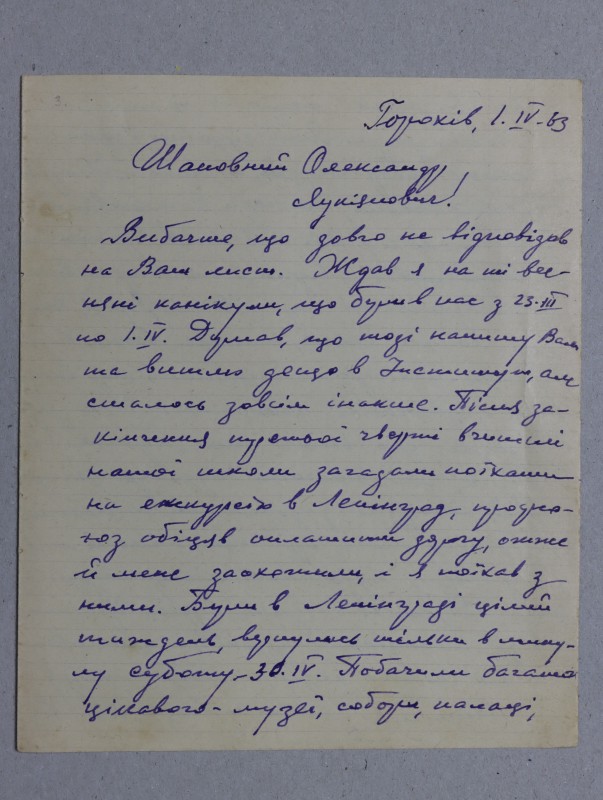 Горохів, 1. IV-63
Шановний Олександр
Лукіянович!
Вибачте, що довго не відповідав
на Ваш лист. Ждав я на ті вес-
няні канікули, що були в нас з 23.III
по 1. IV. Думав, що тоді напишу Вам
та вишлю дещо в Інститут, але
сталось зовсім інакше. Після за-
кінчення третьої чверті вчителі
нашої школи загадали поїхати
на екскурсію в Ленінград, профсо-
юз обіцяв оплатити дорогу, отже
й мене заохотили, і я поїхав з
ними. Були в Ленінграді цілий
тиждень, вернулись тільки в мину-
лу суботу - 30. IV. Побачили багато
цікавого - музеї, собори, палаци,